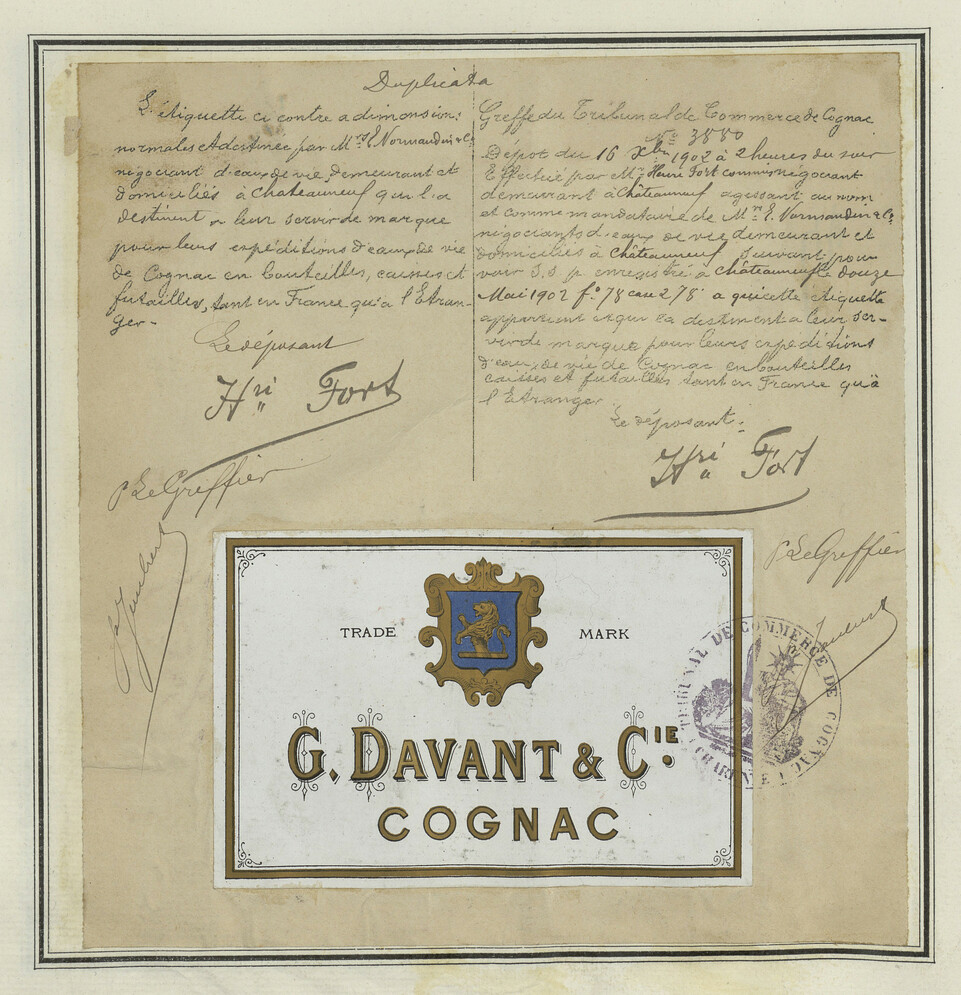 Duplicata
L'étiquette ci contre a dimensions
normales est destinée par Mrs E. Normandin & Co
négociant d'eaux de vie, demeurant et
domiciliés à Chateauneuf qui la
destinent a leur servir de marque
pour leurs expéditions d'eaux de vie
de Cognac en bouteilles, caisses et
futailles, tant en France qu'à l'Etran-
ger.-
Le déposant
Hri Fort
p Le Greffier
Joubert
Greffe du Tribunal de Commerce de Cognac
No 3880
Dépot du 16 Xbre 1902 à 2 heures du soir
Effectué par Mr Henri Fort commis négociant
demeurant à Châteauneuf agissant au nom
et comme mandataire de Mrs E. Normandin & Co
négociants d'eaux de vie demeurant et
domiciliés à Châteauneuf suivant pou-
voir S.S.p enregistré à Châteauneuf le douze
Mai 1902 fo 78 case 278 a qui cette étiquette
appartient et qui la destinent a leur ser-
vir de marque pour leurs expéditions
d'eaux de vie de Cognac en bouteilles
caisses et futailles tant en France qu'à
l'Etranger
Le déposant.
Hri Fort
p Le Greffier
Joubert
TRADE MARK
G. DAVANT & CIE
COGNAC
TRIBUNAL DE COMMERCE DE COGNAC